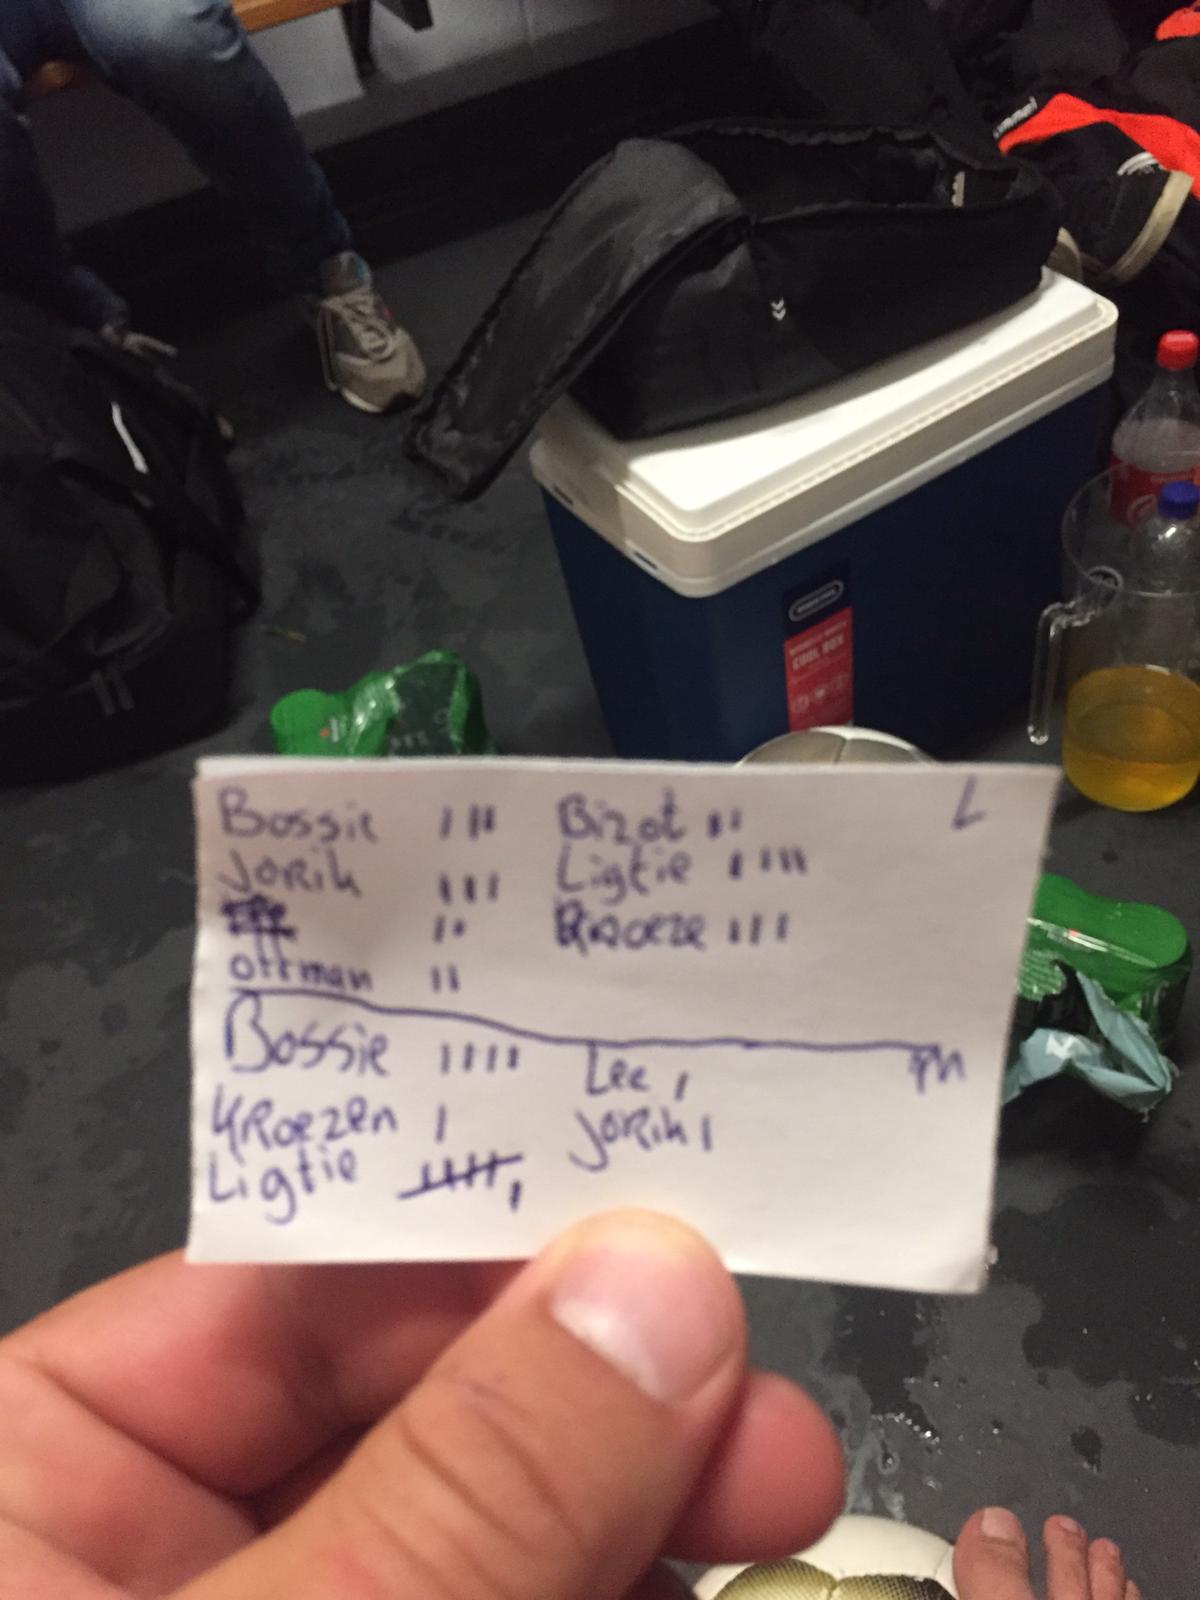 COOL BOX
Bossie III Bizot II L
Jorik III Ligtie IIII
II Kroeze III
Ottman II
Bossie IIII Lee I M
Kroezen I Jorik I
Ligtie IIII I